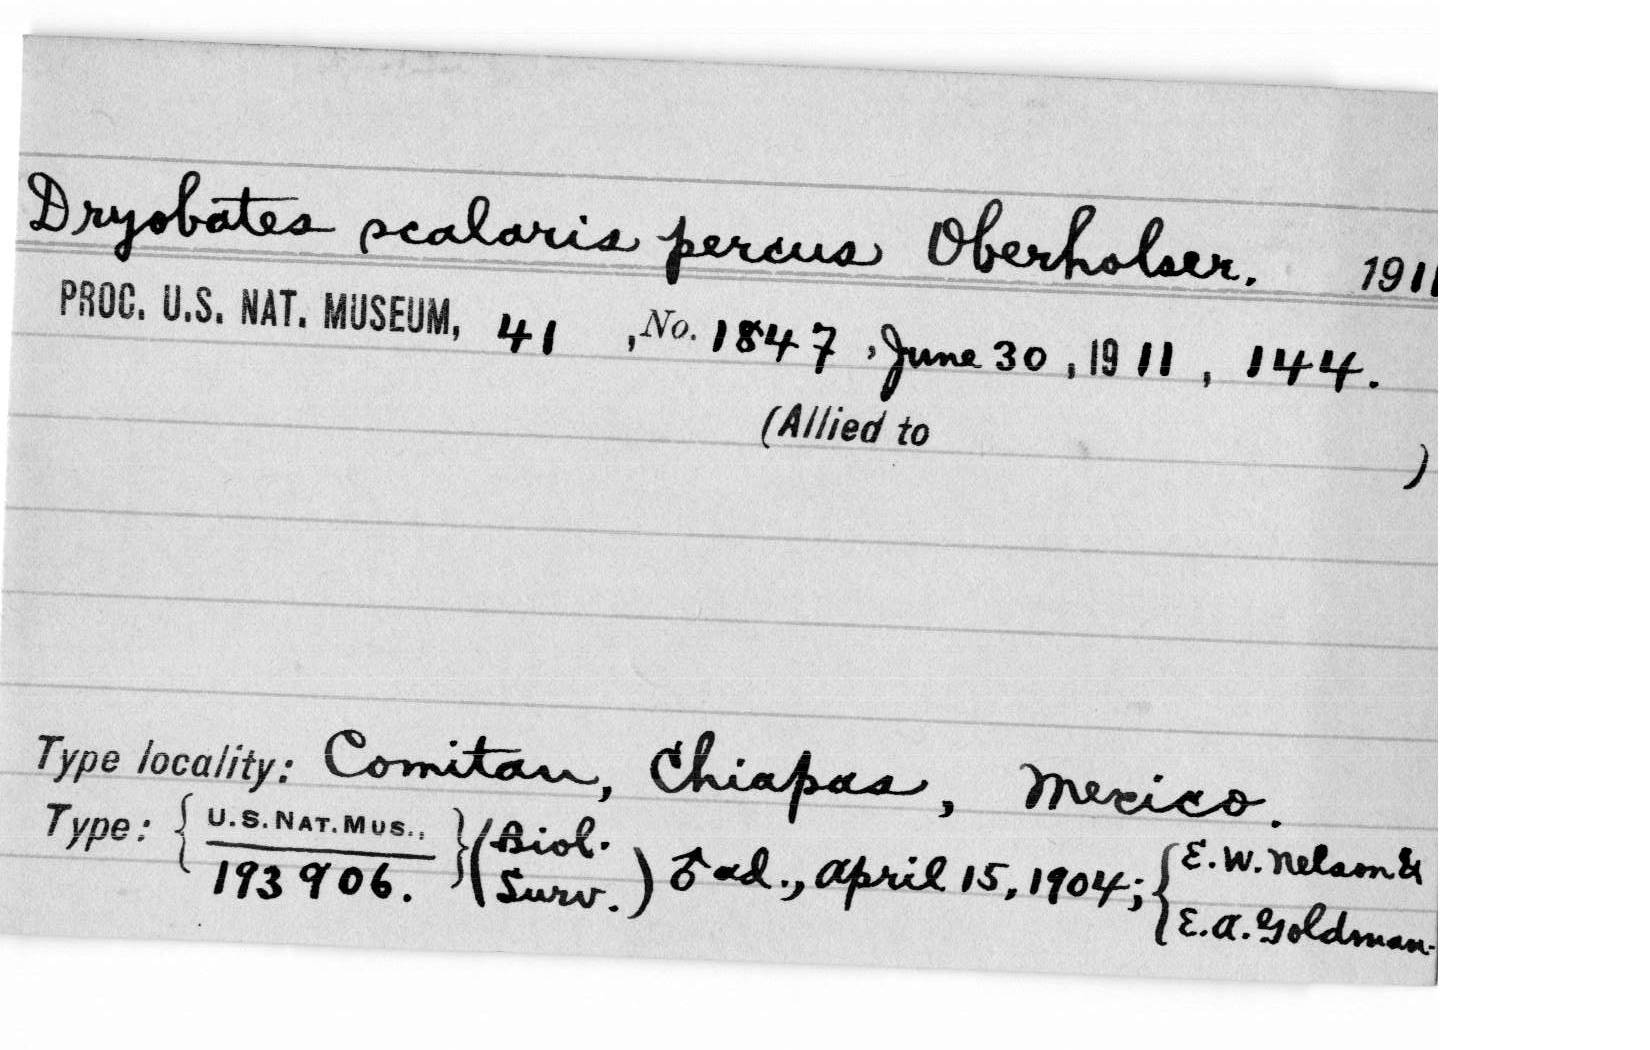 Dryobates scalaris percus Oberholser. 1911
PROC. U.S. NAT. MUSEUM, 41 , No. 1847 , June 30 , 1911 , 144.
(Allied to )
Type locality: Comitan, Chiapas, Mexico.
Type: { U.S.NAT.MUS., } (Biol. Surv.) ♂ ad., April 15, 1904; { E. W. Nelson &
193906. E. A. Goldman.